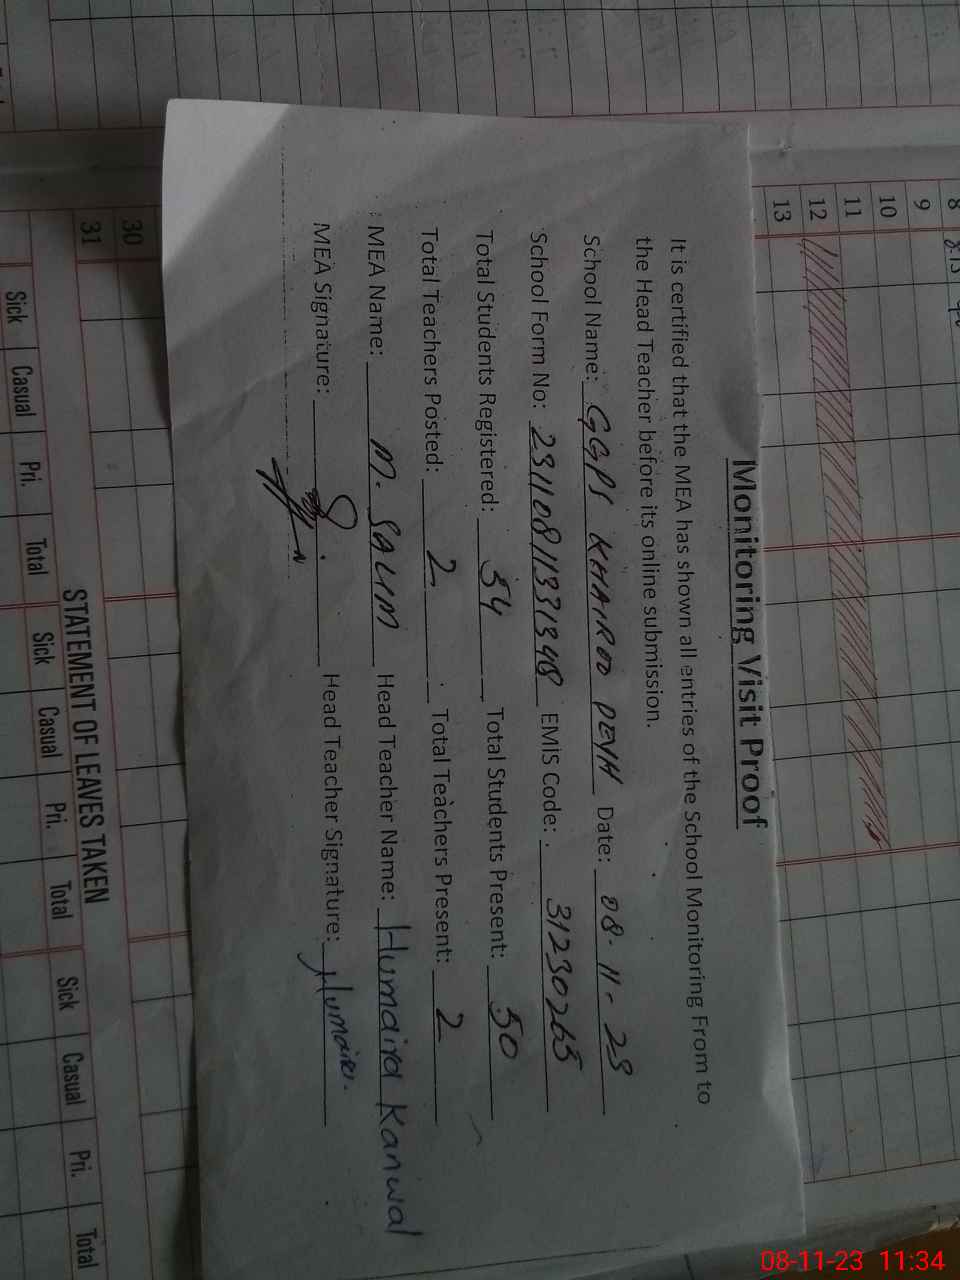 Monitoring Visit Proof
It is certified that the MEA has shown all entries of the School Monitoring From to
the Head Teacher before its online submission.
School Name: GGPS KHAROO DEHH Date: 08-11-23
School Form No: 23110811331348 EMIS Code: 31230265
Total Students Registered: 54 Total Students Present: 50
Total Teachers Posted: 2 Total Teachers Present: 2
MEA Name: M. SALIM Head Teacher Name: Humaira Kanwal
MEA Signature: Head Teacher Signature: Humaira
8
9
10
11
12
13
30
31
STATEMENT OF LEAVES TAKEN
Sick Casual Pri. Total Sick Casual Pri. Total Sick Casual Pri. Total
08-11-23 11:34